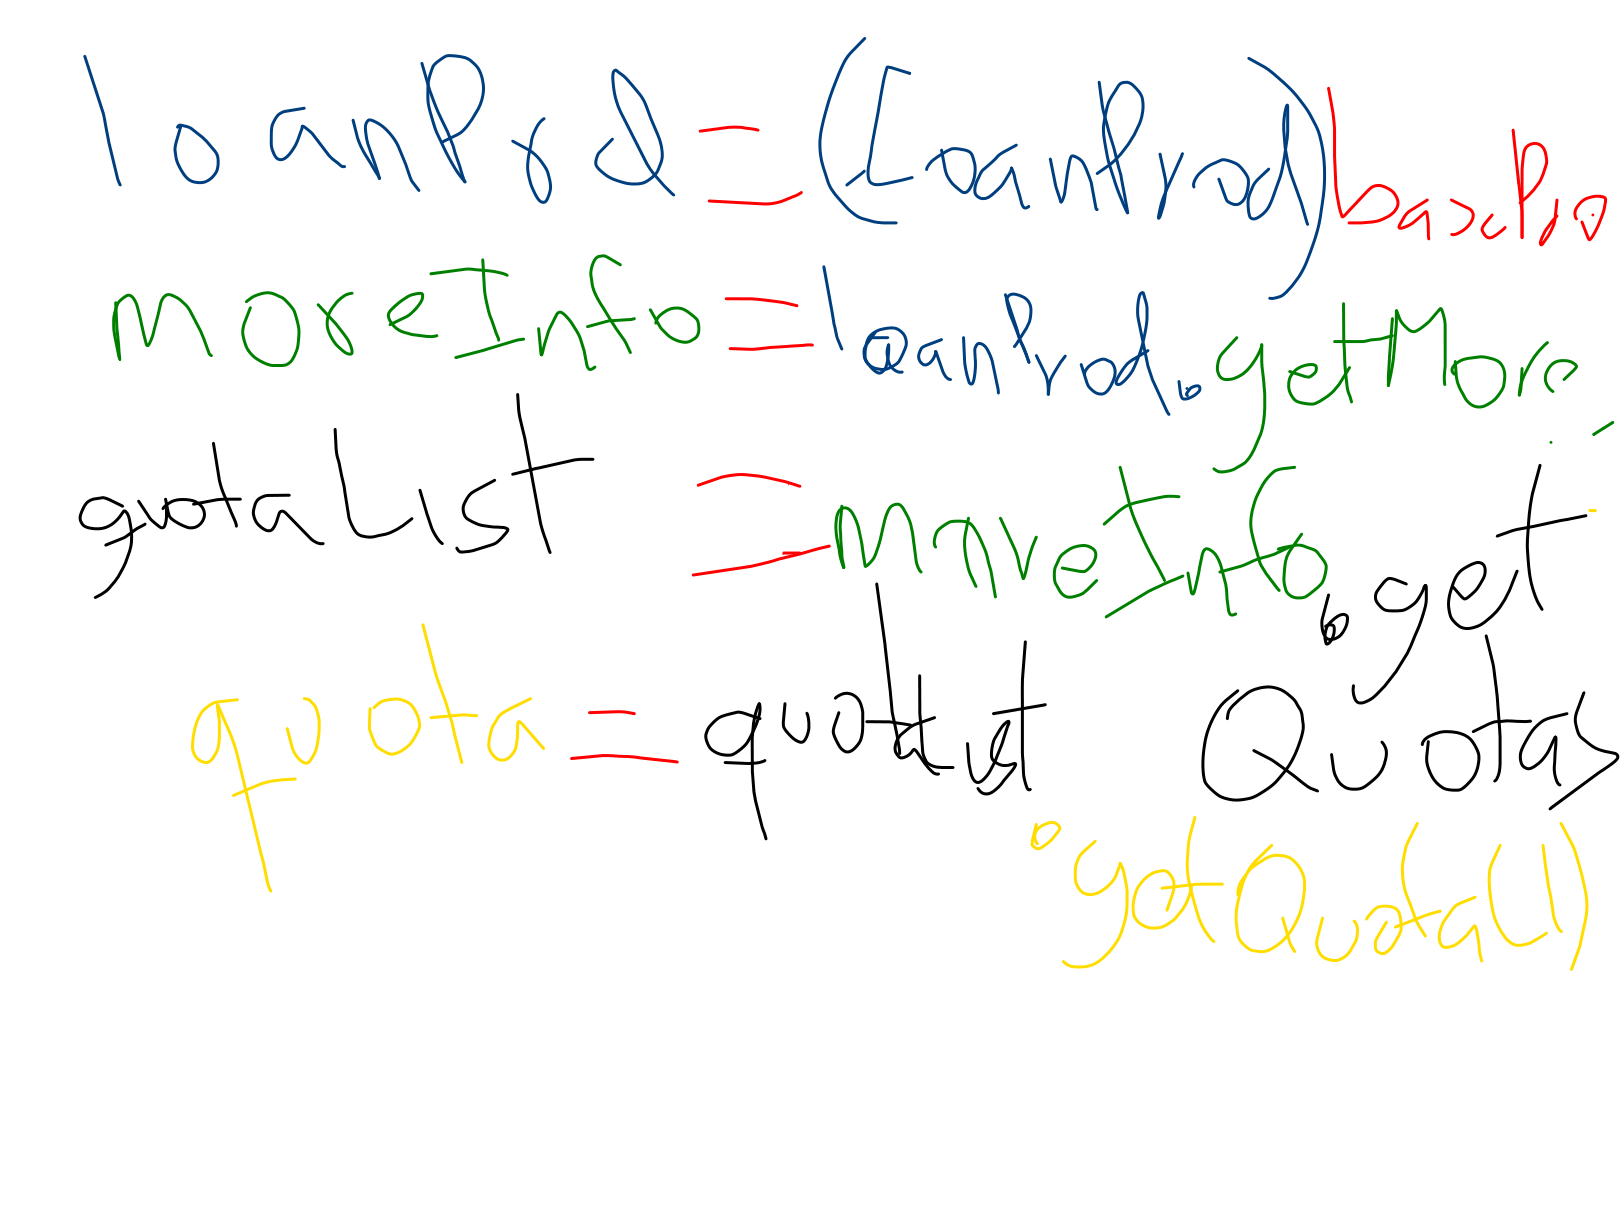 loanPrd = (LoanProd) basePro
moreInfo = loanProd.getMore
quotaList = moreInfo.get
quota = quotList Quotas
.getQuota()